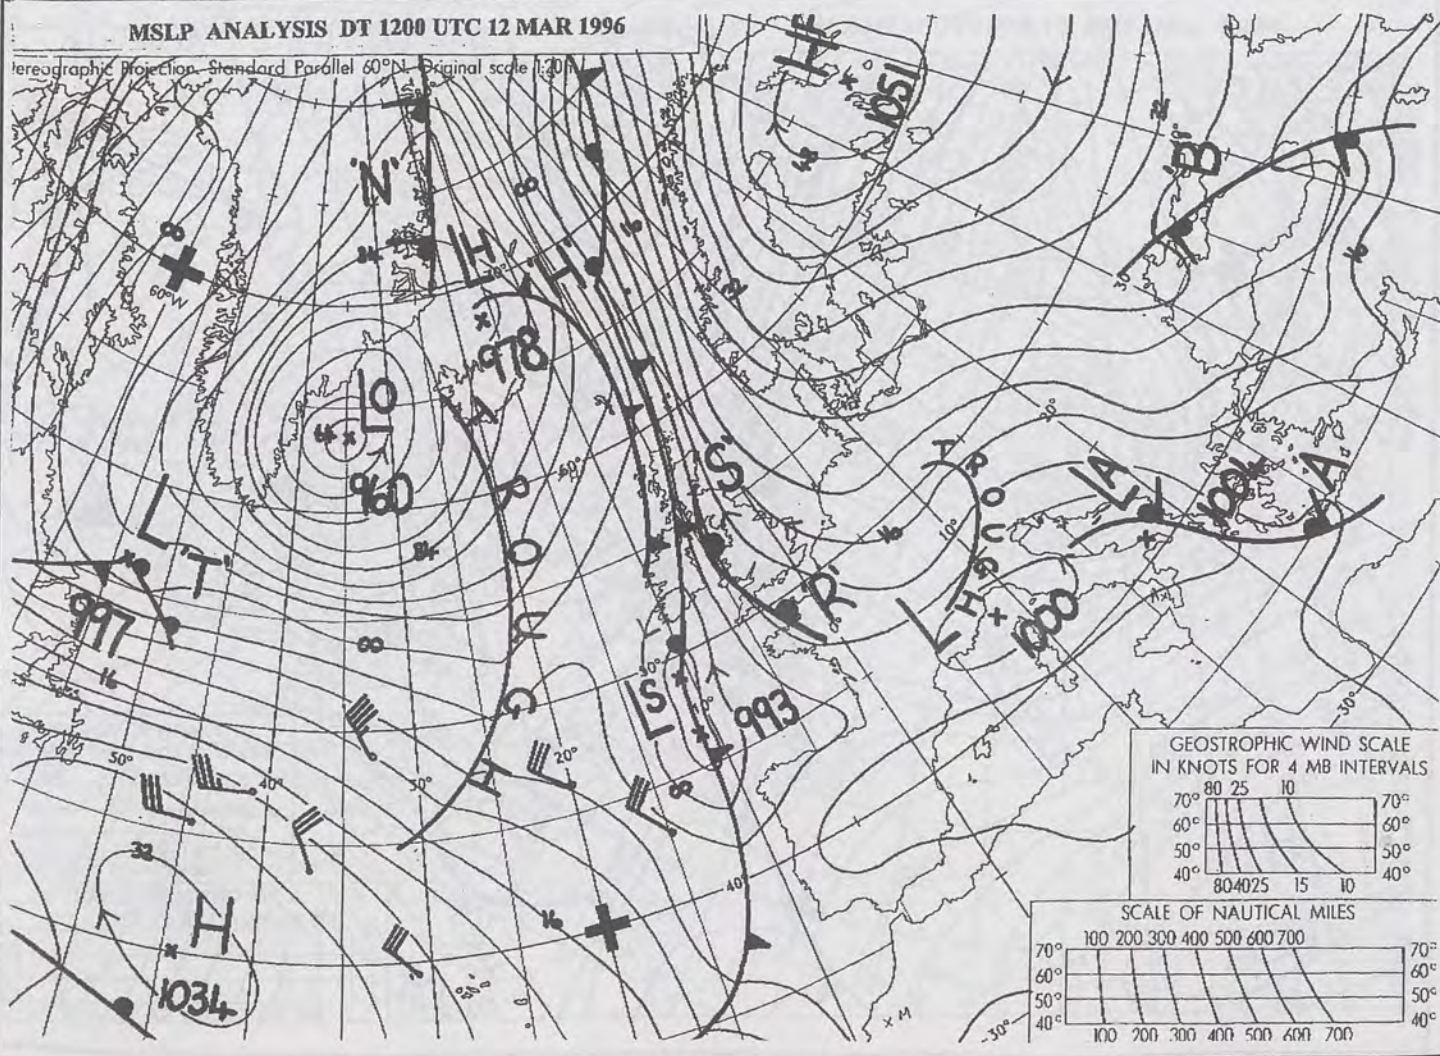 MSLP ANALYSIS DT 1200 UTC 12 MAR 1996
ereographic Projection. Standard Parallel 60°N. Original scale 1:20m
H
1051
48
32
'B'
'N'
8
60°W
84
H
'H'
8
16
32
978
L
O
64
960
84
L
'T'
997
16
00
TROUGH
'S'
'R'
TROUGH
16
10°
30°
L
1000
L
A
1004
'A'
16
60°
50°
L
S
993
8
50°
40°
30°
20°
40°
16
32
H
1034
-30°
-30°
× M
GEOSTROPHIC WIND SCALE
IN KNOTS FOR 4 MB INTERVALS
80 25 10
70° 70°
60° 60°
50° 50°
40° 40°
804025 15 10
SCALE OF NAUTICAL MILES
100 200 300 400 500 600 700
70° 70°
60° 60°
50° 50°
40° 40°
100 200 300 400 500 600 700